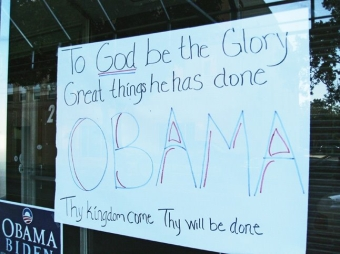 To God be the Glory
Great things he has done
OBAMA
Thy kingdom come Thy will be done
OBAMA
BIDEN